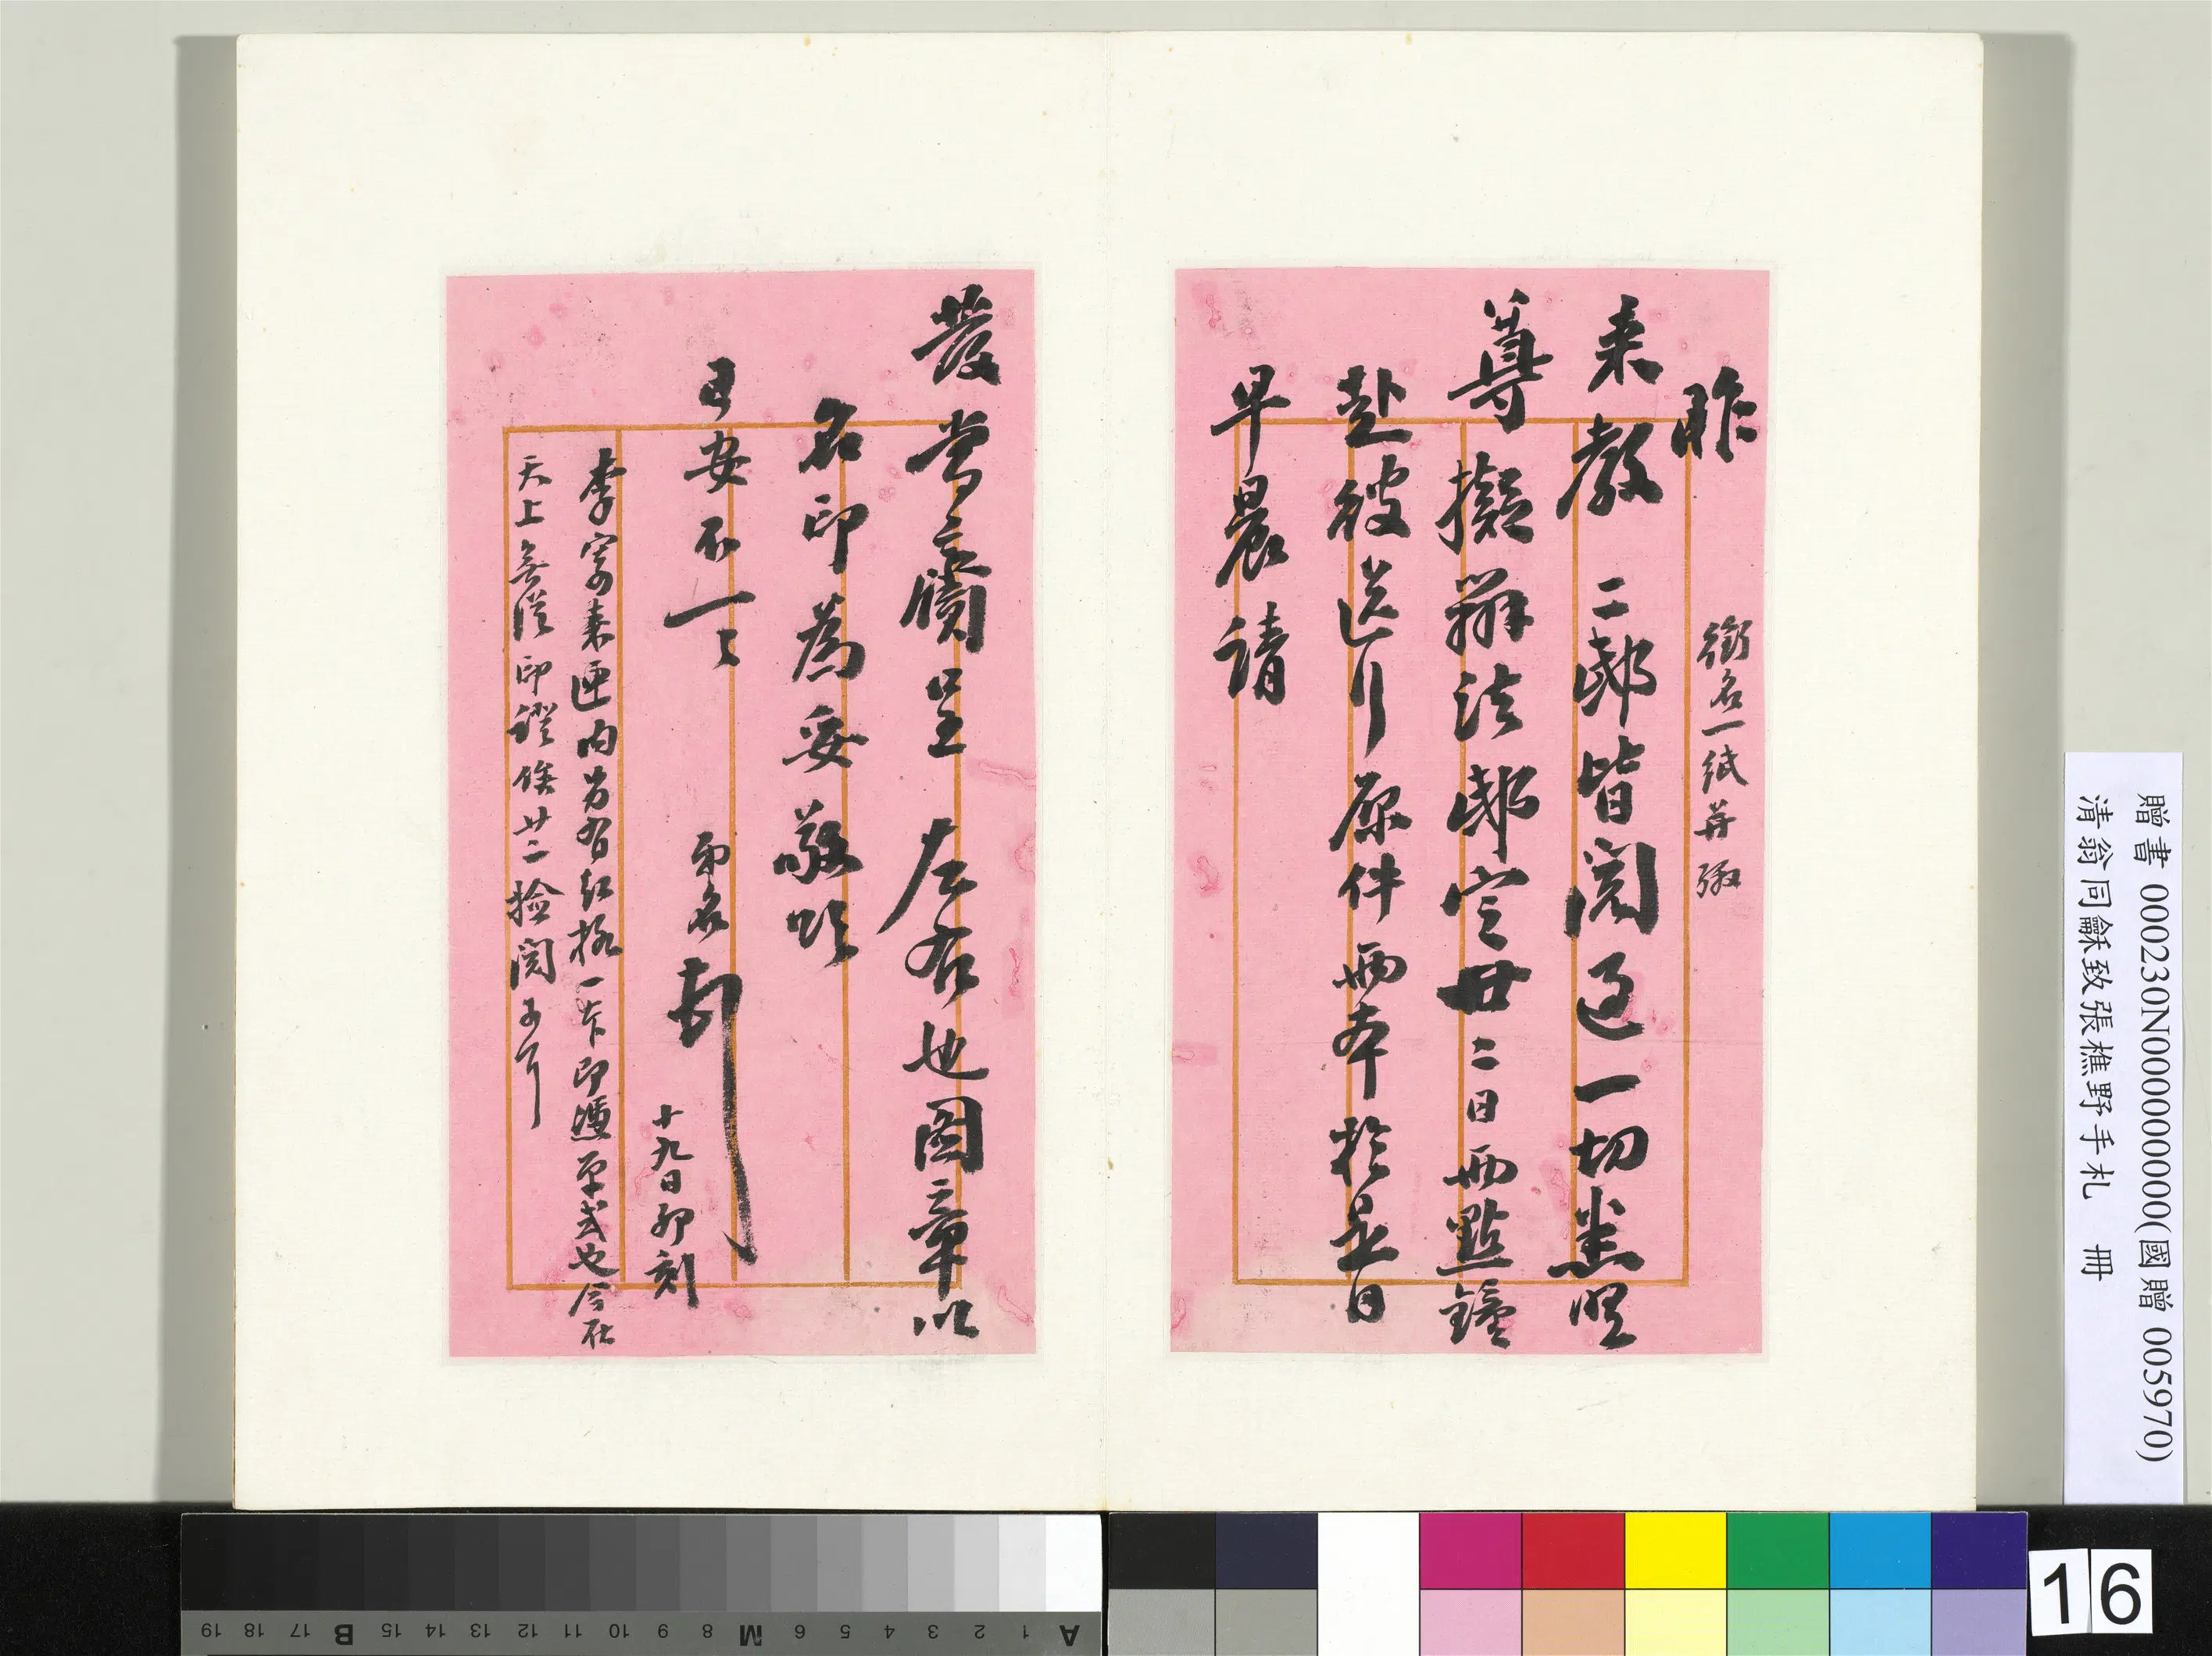 昨
銜名一紙并繳
来教二邸皆閱過一切悉照
尊擬辦法邸定廿二日兩點鐘
赴彼送行原件兩本於是日
早晨請
發當賫呈左右也圖章以
名印為妥敬頌
日安不一一
弟名頓 十九日卯刻
李寄来匣内另有紅格一本印憑單式也今在
天上無從印證俟廿二檢閱可耳
贈書 000230N000000000(國贈 005970)
清翁同龢致張樵野手札 冊
A 1 2 3 4 5 6 M 8 9 10 11 12 13 14 15 B 17 18 19
16